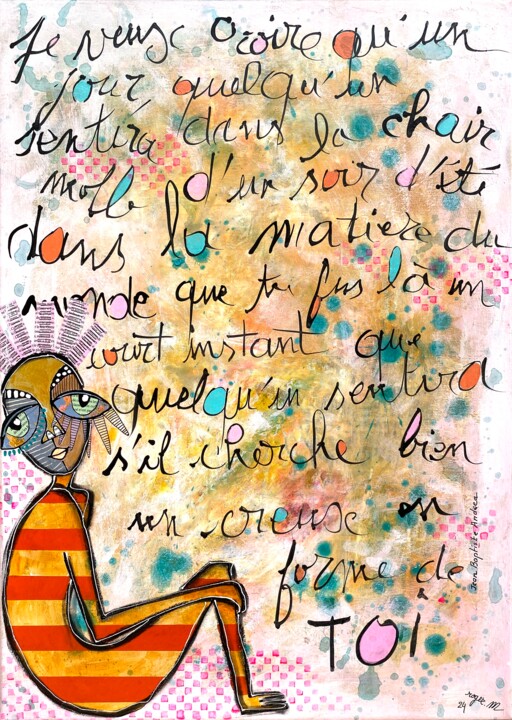 Je veux croire qu'un
jour quelqu'un
sentira dans la chair
molle d'un soir d'été
dans la matière du
monde que tu fus là un
court instant que
quelqu'un sentira
s'il cherche bien
un creux en
forme de
TOI
Jean Baptiste Andrea
roque. M
24